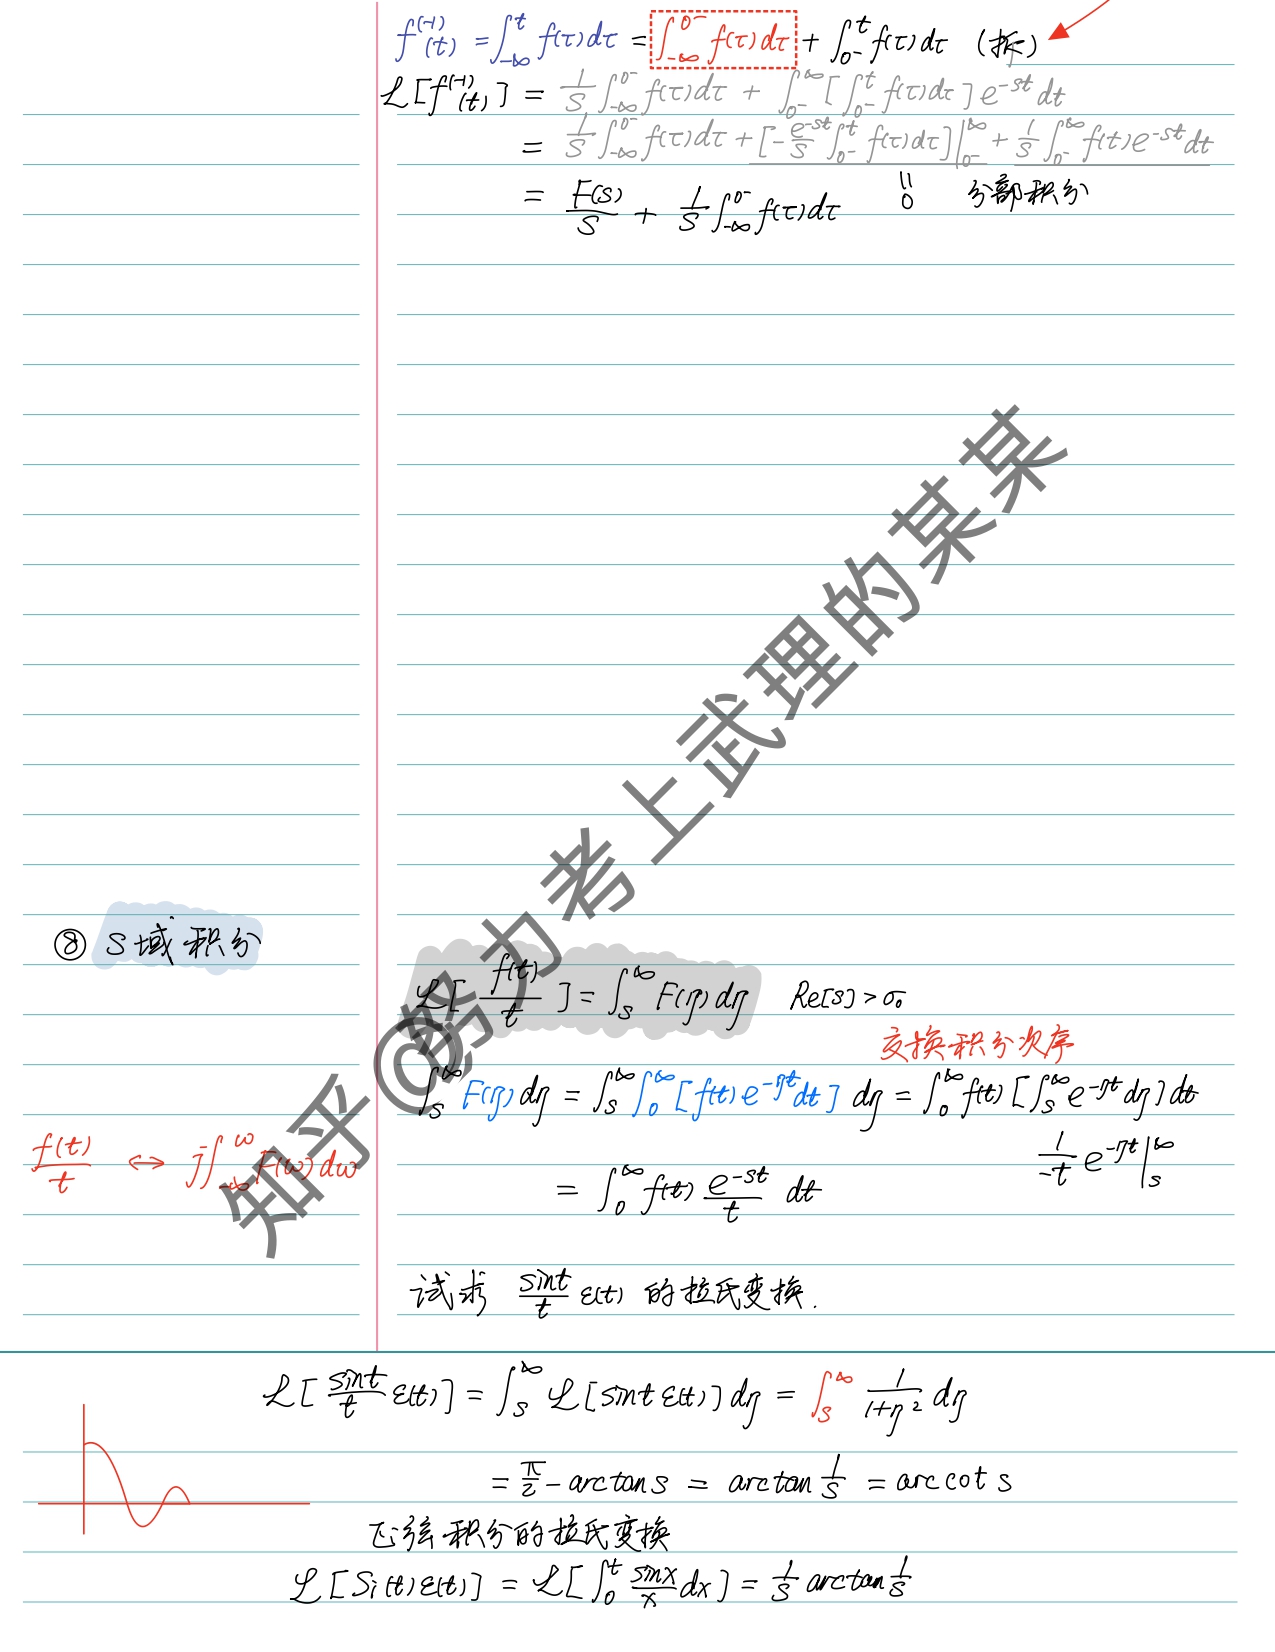 f⁽⁻¹⁾(t) = ∫_{-∞}^{t} f(τ)dτ = ∫_{-∞}^{0⁻} f(τ)dτ + ∫_{0⁻}^{t} f(τ)dτ (拆)
ℒ[f⁽⁻¹⁾(t)] = 1/S ∫_{-∞}^{0⁻} f(τ)dτ + ∫_{0⁻}^{∞} [∫_{0⁻}^{t} f(τ)dτ] e^{-st} dt
= 1/S ∫_{-∞}^{0⁻} f(τ)dτ + [-e^{-st}/S ∫_{0⁻}^{t} f(τ)dτ]|_{0⁻}^{∞} + 1/S ∫_{0⁻}^{∞} f(t)e^{-st}dt
= F(S)/S + 1/S ∫_{-∞}^{0⁻} f(τ)dτ = 0 分部积分
⑧ S域积分
ℒ[f(t)/t] = ∫_{S}^{∞} F(η)dη Re[s]>σ₀
交换积分次序
∫_{S}^{∞} F(η)dη = ∫_{S}^{∞} ∫_{0}^{∞} [f(t)e^{-ηt}dt] dη = ∫_{0}^{∞} f(t)[∫_{S}^{∞} e^{-ηt}dη]dt
f(t)/t ⇔ j∫_{-∞}^{ω} F(ω)dω
1/-t e^{-ηt}|_{S}^{∞}
= ∫_{0}^{∞} f(t) e^{-st}/t dt
试求 sint/t ε(t) 的拉氏变换.
ℒ[sint/t ε(t)] = ∫_{S}^{∞} ℒ[sint ε(t)]dη = ∫_{S}^{∞} 1/(1+η²) dη
= π/2 - arctan s = arctan 1/S = arccot s
正弦积分的拉氏变换
ℒ[Si(t)ε(t)] = ℒ[∫_{0}^{t} sinx/x dx] = 1/S arctan 1/S
知乎@努力考上武理的某某